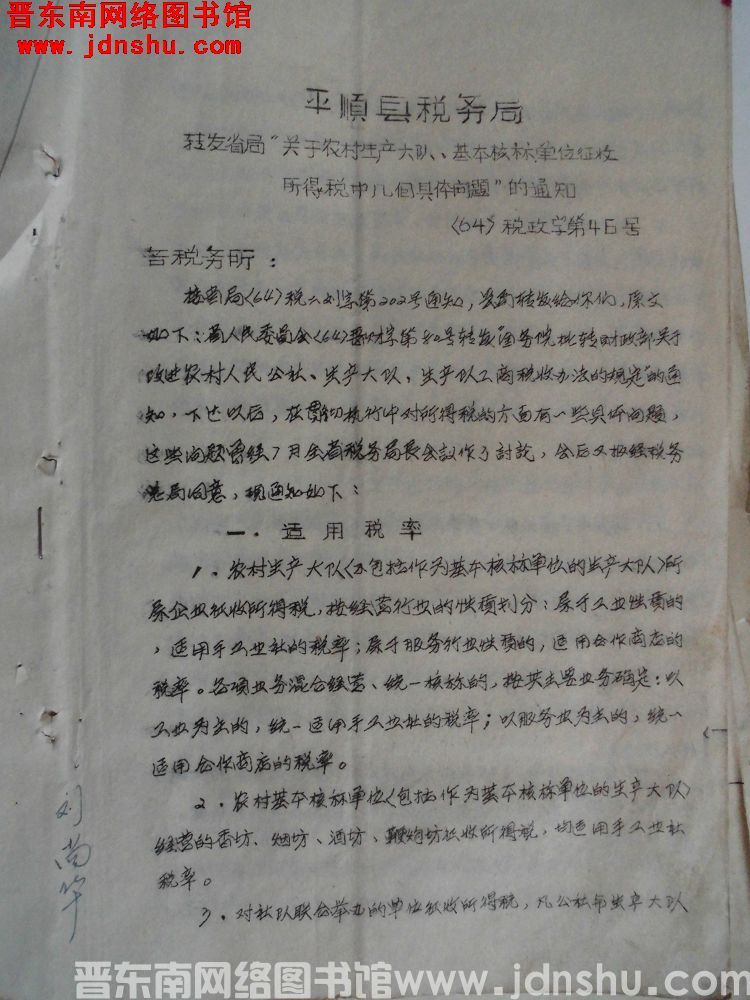 晋东南网络图书馆
www.jdnshu.com
平順县税务局
转发省局“关于农村生产大队、基本核标单位征收
所得税中几個具体问題”的通知
〈64〉税政学第46号
各税务所：
接省局〈64〉税二刘字第202号通知，将转发给你们，原文
如下：省人民委員会〈64〉晋财字第80号转发国务院批转财政部关于
改进农村人民公社、生产大队、生产队工商税收办法的规定”的通
知，下达以后，在贯彻执行中对所得税的方面有一些具体问題，
这些问题曾经7月全省税务局长会议作了討论，会后又报经税务
总局同意，現通知如下：
一．适用税率
1．农村生产大队〈不包括作为基本核标单位的生产大队〉所
属企业征收所得税，按经营行业的性質划分：属于工业性質的
，适用手工业社的税率；属于服务行业性質的，适用合作商店的
税率。各項业务混合经营、统一核标的，按其主要业务确定：以
工业为主的，统一适用手工业社的税率；以服务业为主的，统一
适用合作商店的税率。
2．农村基本核标单位〈包括作为基本核标单位的生产大队〉
经营的香坊、烟坊、酒坊、鞭炮坊征收所得税，均适用手工业社
税率。
3．对社队联合举办的单位征收所得税，凡公社和生产大队
刘尚华
晋东南网络图书馆www.jdnshu.com